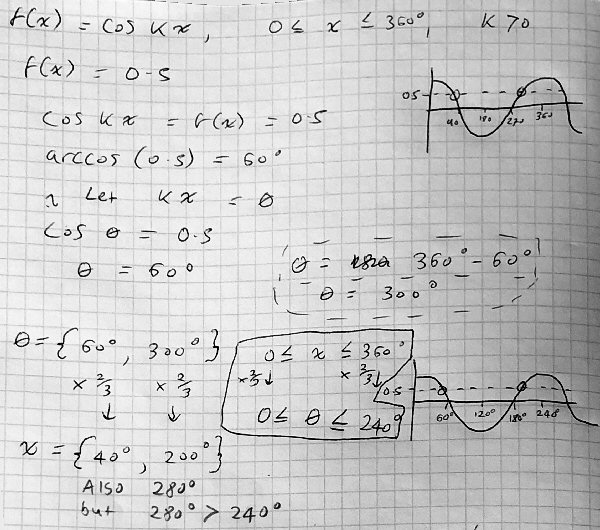 f(x) = cos Kx, 0 ≤ x ≤ 360°, K > 0
f(x) = 0.5
cos Kx = f(x) = 0.5
arccos (0.5) = 60°
Let Kx = θ
cos θ = 0.5
θ = 60°
0.5
90 180 270 360
θ = 360° - 60°
θ = 300°
θ = {60°, 300°}
× 2/3 × 2/3
↓ ↓
x = {40°, 200°}
Also 280°
but 280° > 240°
0 ≤ x ≤ 360°
× 2/3 ↓ × 2/3 ↓
0 ≤ θ ≤ 240°
0.5
60° 120° 180° 240°